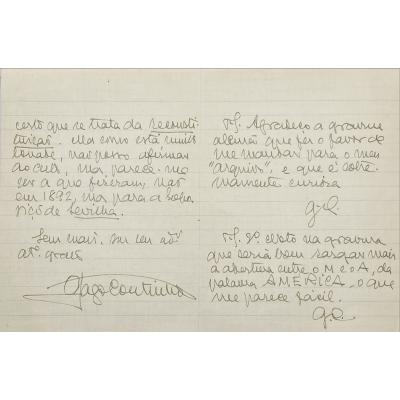 certo que se trata da reconsti-
tuição. Mas como está muito
tonade, não posso afirmar
ao certo, mas parece-me
ser a que fizeram, não
em 1892, mas para a Expo-
sição de Sevilha.
Sem mais, sou seu
at.º grato
Gago Coutinho
P.S. Agradeço a gravura
alemã que fez o favor de
me mandar para o meu
"arquivo", e que é extre-
mamente curiosa
G.C.
P.S. 2º na gravura
que seria bom rasgar mais
a abertura entre o M e o A, da
palavra AMERICA - o que
me parece fácil.
G.C.